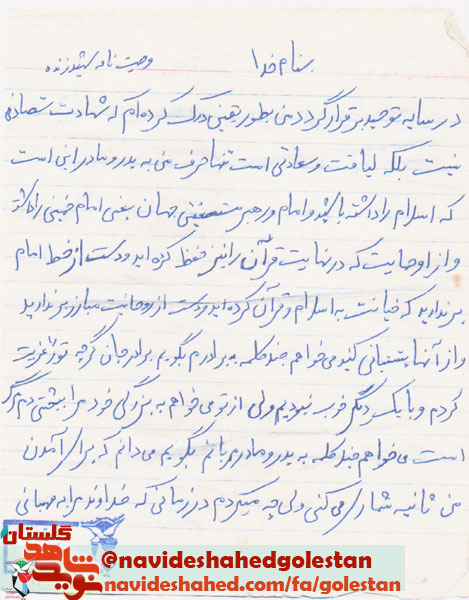 بنام خدا
وصیت نامه شهید زنده
در سایه توحید برقرار گردد من بطور یقینی درک کرده‌ام که شهادت تصادفی
نیست بلکه لیاقت و سعادتی است تنها حرف من به پدر و مادر این است
که اسلام را داشته باشید و امام و رهبر مستضعفین جهان یعنی امام خمینی را داشته
و از او حمایت که در نهایت قرآن را نیز حفظ کرده اید و دست از خط امام
بر ندارید که خیانت به اسلام و قرآن کرده اید و دست از روحانیت مبارز بر ندارید
و از آنها پشتیبانی کنید می‌خواهم چند کلمه به برادرم بگویم برادر جان گرچه تو را اذیت
کردم و با یک دیگر خوب نبودیم ولی از تو می‌خواهم به بزرگی خود مرا ببخشی دیگر
است می‌خواهم چند کلمه به پدر و مادر مهربانم بگویم می دانم که برای آمدن
من ثانیه شماری می کنی ولی چه میکردم در زمانی که خداوند مرا به مهمانی
گلستان
نوید شاهد
@navideshahedgolestan
navideshahed.com/fa/golestan